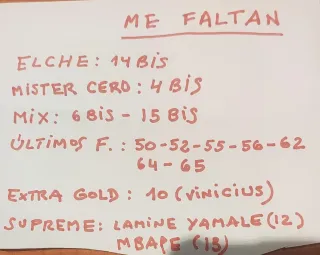 ME FALTAN
ELCHE: 14 BIS
MISTER CERO: 4 BIS
MIX: 6 BIS - 15 BIS
ÚLTIMOS F.: 50-52-55-56-62
64-65
EXTRA GOLD: 10 (VINICIUS)
SUPREME: LAMINE YAMALE (12)
MBAPE (13)